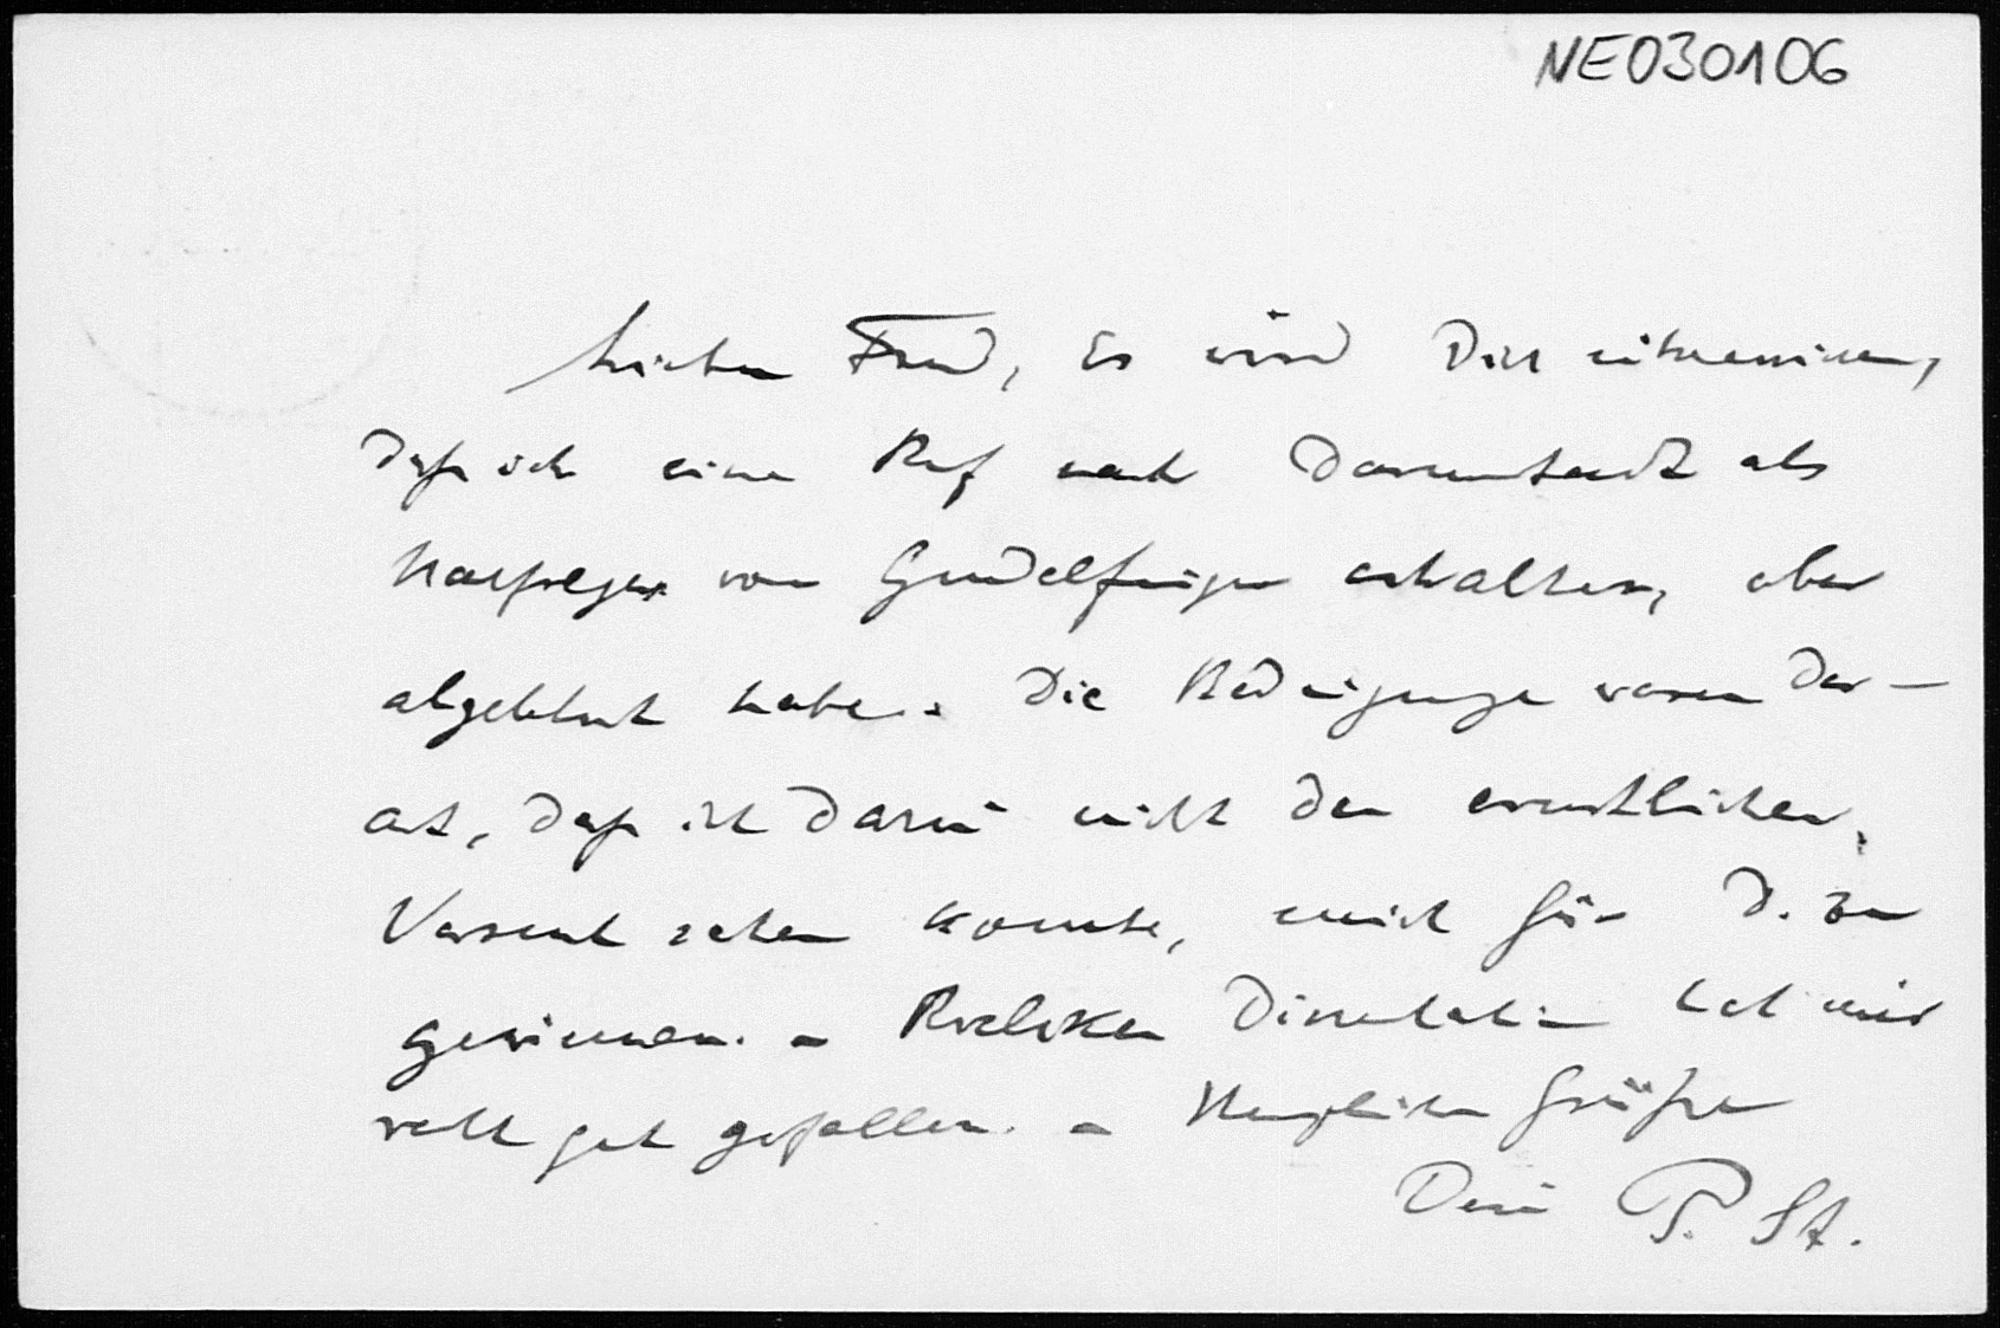 NE030106
Lieber Freund, Es wird Dich interessieren,
daß ich einen Ruf nach Darmstadt als
Nachfolger von Gundelfinger erhalten, aber
abgelehnt habe. Die Bedingungen waren der-
art, daß ich darin nicht den ernstlichen
Versuch sehen konnte, mich für D. zu
gewinnen. - Dissertation hat mir
recht gut gefallen. - Herzliche Grüße
Dein P. St.